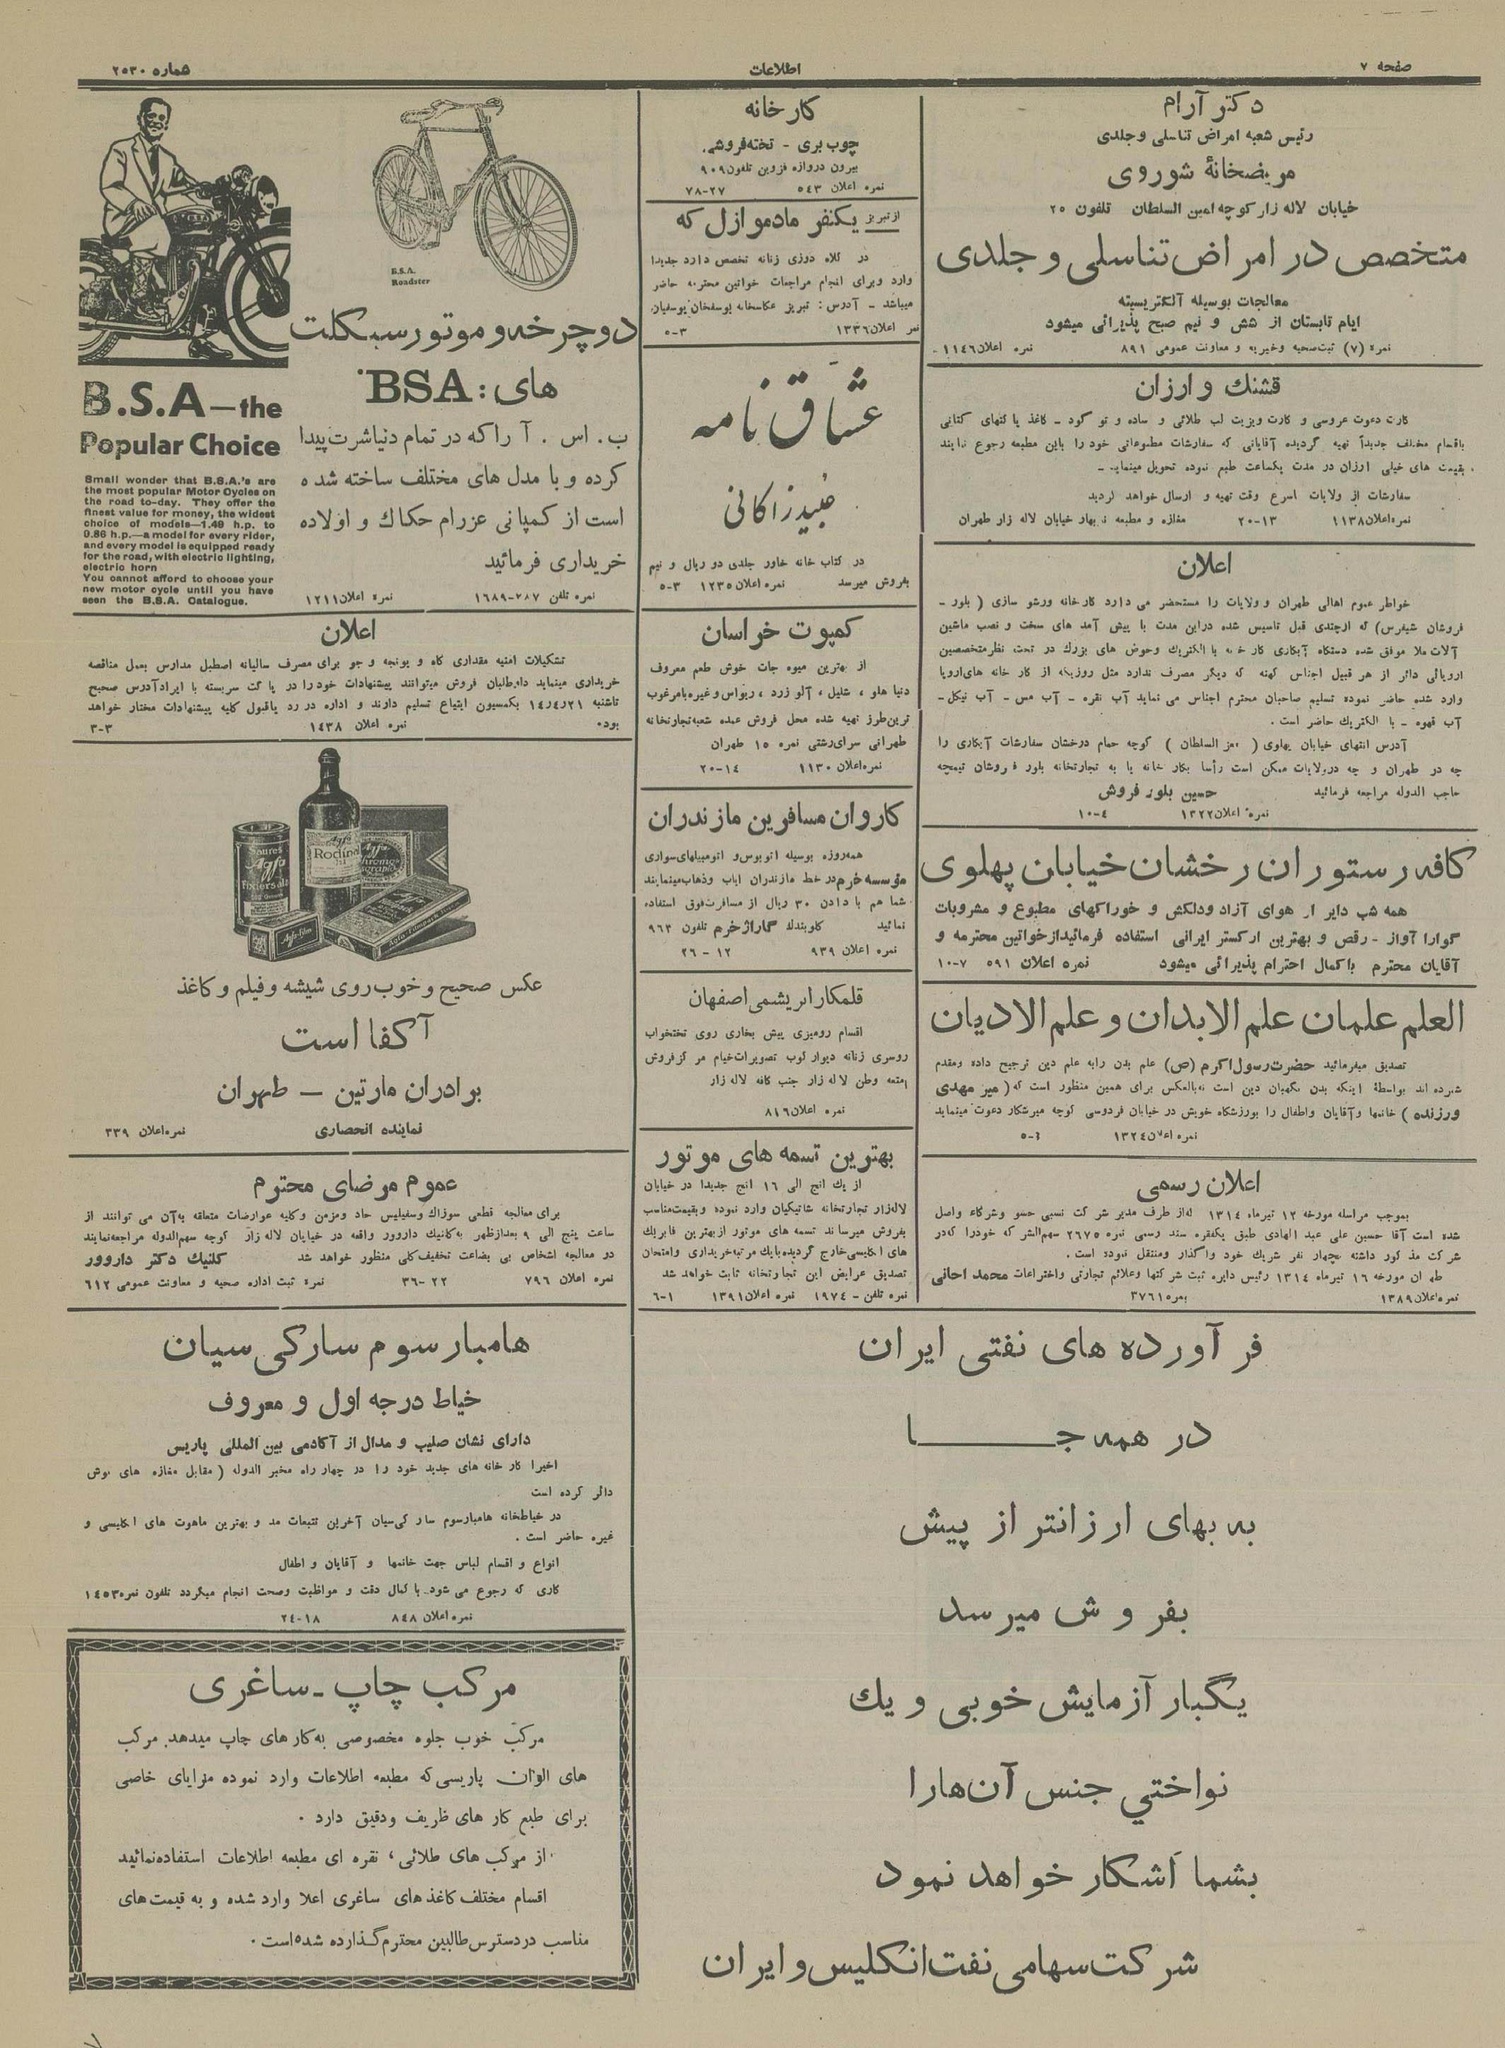 صفحه ۷
اطلاعات
شماره ۲۵۳۰
دکتر آرام
رئیس شعبه امراض تناسلی و جلدی
مریضخانهٔ شوروی
خیابان لاله زار کوچه امین السلطان تلفون ۲۵
متخصص در امراض تناسلی و جلدی
معالجات بوسیله آلکتریسیته
ایام تابستان از شش و نیم صبح پذیرائی میشود
نمره (۷) ثبت صحیه و خیریه و معاونت عمومی ۸۹۱ نمره اعلان ۱۱۴۶-
قشنك و ارزان
کارت دعوت عروسی و کارت ویزیت لب طلائی و ساده و تو گود - کاغذ پاکتهای کتانی
باقسام مختلف جدیداً تهیه گردیده آقایانی که سفارشات مطبوعاتی خود را باین مطبعه رجوع نمایند
بقیمت های خیلی ارزان در مدت یکساعت طبع نموده تحویل مینماید -
سفارشات از ولایات اسرع وقت تهیه و ارسال خواهد گردید
نمره اعلان ۱۱۳۸ ۲۰-۱۳ مغازه و مطبعه نهار خیابان لاله زار طهران
اعلان
خواطر عموم اهالی طهران و ولایات را مستحضر می دارد کارخانه ورشو سازی ( بلور -
فروشان شیفرس) که ازچندی قبل تاسیس شده دراین مدت با پیش آمد های سخت و نصب ماشین
آلات ملا موفق شده دستگاه آبکاری کارخانه با الکتریك وحوض های بزرك در تحت نظر متخصصین
اروپائی دائر از هر قبیل اجناس کهنه که دیگر مصرف ندارد مثل روزیکه از کار خانه های اروپا
وارد شده حاضر نموده تسلیم صاحبان محترم اجناس می نماید آب نقره - آب مس - آب نیکل -
آب قهوه - با الکتریك حاضر است .
آدرس انتهای خیابان پهلوی ( معز السلطان ) کوچه حمام درخشان سفارشات آبکاری را
چه در طهران و چه درولایات ممکن است رأسا بکار خانه یا به تجارتخانه بلور فروشان تیمچه
حاجب الدوله مراجعه فرمائید حسین بلور فروش
نمره اعلان ۱۳۲۲ ۱۰-۴
کافه رستوران رخشان خیابان پهلوی
همه شب دایر از هوای آزاد ودلکش و خوراکهای مطبوع و مشروبات
گوارا آواز - رقص و بهترین ارکستر ایرانی استفاده فرمائید از خواتین محترمه و
آقایان محترم باکمال احترام پذیرائی میشود نمره اعلان ۵۹۱ ۱۰-۷
العلم علمان علم الابدان و علم الادیان
تصدیق میفرمائید حضرت رسول اکرم (ص) علم بدن رابه علم دین ترجیح داده ومقدم
شمرده اند بواسطهٔ اینکه بدن نگهبان دین است نه بالعکس برای همین منظور است که ( میر مهدی
ورزنده ) خانمها وآقایان واطفال را بورزشگاه خویش در خیابان فردوسی کوچه میرشکار دعوت مینماید
نمره اعلان ۱۳۲۴
اعلان رسمی
بموجب مراسله مورخه ۱۲ تیرماه ۱۳۱۴ که از طرف مدیر شرکت نسبی حسو وشرکاء واصل
شده است آقا حسین علی عبد الهادی طبق یکفقره سند رسمی نمره ۲۶۷۵ سهم الشرکه خودرا که در
شرکت مذکور داشته بچهار نفر شریك خود واگذار ومنتقل نموده است .
طهران مورخه ۱۶ تیرماه ۱۳۱۴ رئیس دایره ثبت شرکتها وعلائم تجارتی واختراعات
نمره اعلان ۱۳۸۹ نمره ۳۷۶۱
کارخانه
چوب بری - تخته فروشی
بیرون دروازه قزوین تلفون ۹۰۹
نمره اعلان ۵۴۳ ۷۸-۲۷
از تبریز یکنفر مادموازل که
در کلاه دوزی زنانه تخصص دارد جدیدا
وارد وبرای انجام مراجعات خواتین محترمه حاضر
میباشد - آدرس: تبریز عکاسخانه یوسفخان یوسفیان
نمره اعلان ۱۳۳۶ ۵-۳
عشاق نامه
عبید زاکانی
در کتاب خانه خاور جلدی دو ریال و نیم
بفروش میرسد نمره اعلان ۱۲۳۵ ۵-۳
کمپوت خراسان
از بهترین میوه جات خوش طعم معروف
دنیا هلو ، شلیل ، آلو زرد ، ریواس و غیره بامرغوب
ترین طرز تهیه شده محل فروش عمده شعبه تجارتخانه
طهرانی سرای رشتی نمره ۱۵ طهران
نمره اعلان ۱۱۳۰ ۲۰-۱۴
کاروان مسافرین مازندران
همه روزه بوسیله اتوبوس و اتومبیلهای سواری
مؤسسه خرم در خط مازندران ایاب وذهاب مینمایند
شما هم با دادن ۳۰ ریال از مسافرت فوق استفاده
نمائید گاراژ خرم تلفون ۹۶۳
نمره اعلان ۹۳۹ ۲۶-۱۲
قلمکار ابریشمی اصفهان
اقسام رومیزی پیش بخاری روی تختخواب
روسری زنانه دیوار کوب تصویرات خیام مرکز فروش
امتعه وطن لاله زار جنب کافه لاله زار
نمره اعلان ۸۱۶
بهترین تسمه های موتور
از یك انج الی ۱۶ انج جدیدا در خیابان
لاله زار تجارتخانه شاتیکیان وارد نموده و بقیمت مناسب
بفروش میرساند تسمه های موتور از بهترین فابریك
های انگلیسی خارج گردیده با یك مرتبه خریداری وامتحان
تصدیق عرایض این تجارتخانه ثابت خواهد شد
نمره تلفن - ۱۹۷۴ نمره اعلان ۱۳۹۱ ۶-۱
B.S.A. Roadster
دوچرخه و موتور سیکلت
های : BSA
ب . اس . آ را که در تمام دنیا شهرت پیدا
کرده و با مدل های مختلف ساخته شده
است از کمپانی عزرام حکاك و اولاده
خریداری فرمائید
نمره تلفن ۲۸۷-۱۶۸۹ نمره اعلان ۱۲۱۱
B.S.A — the
Popular Choice
Small wonder that B.S.A.'s are
the most popular Motor Cycles on
the road to-day. They offer the
finest value for money, the widest
choice of models—1.49 h.p. to
9.86 h.p.—a model for every rider,
and every model is equipped ready
for the road, with electric lighting,
electric horn
You cannot afford to choose your
new motor cycle until you have
seen the B.S.A. Catalogue.
اعلان
تشکیلات امنیه مقداری کاه و یونجه و جو برای مصرف سالیانه اصطبل مدارس بعمل مناقصه
خریداری مینماید داوطلبان فروش میتوانند پیشنهادات خود را در پاکت سربسته با ایراد آدرس صحیح
تاشنبه ۱۴/۴/۲۱ بکمسیون ابتیاع تسلیم دارند و اداره در رد یاقبول کلیه پیشنهادات مختار خواهد
بود. نمره اعلان ۱۴۳۸ ۳-۳
Saures
Agfa
Fixiersalz
Agfa
Rodinal
Agfa
Agfa-film
عکس صحیح و خوب روی شیشه و فیلم و کاغذ
آکفا است
برادران مارتین — طهران
نماینده انحصاری
نمره اعلان ۳۳۹
عموم مرضای محترم
برای معالجه قطعی سوزاك وسفیلیس حاد ومزمن وکلیه عوارضات متعلقه به آن می توانند از
ساعت پنج الی ۹ بعدازظهر به کلنیك داروور واقعه در خیابان لاله زار کوچه سهم الدوله مراجعه نمایند
در معالجه اشخاص بی بضاعت تخفیف کلی منظور خواهد شد کلنیك دکتر داروور
نمره اعلان ۷۹۶ ۳۶-۲۲ نمره ثبت اداره صحیه و معاونت عمومی ۶۱۲
هامبارسوم سارکی سیان
خیاط درجه اول و معروف
دارای نشان صلیب و مدال از آکادمی بین المللی پاریس
اخیرا کارخانه های جدید خود را در چهار راه مخبر الدوله ( مقابل مغازه های بوش
دائر کرده است
در خیاطخانه هامبارسوم سارکی سیان آخرین تتبعات مد و بهترین ماهوت های انگلیسی و
غیره حاضر است .
انواع و اقسام لباس جهت خانمها و آقایان و اطفال
کاری که رجوع می شود با کمال دقت و مواظبت وصحت انجام میگردد تلفون نمره ۱۴۵۳
نمره اعلان ۸۴۸ ۲۴-۱۸
مرکب چاپ - ساغری
مرکب خوب جلوه مخصوصی به کار های چاپ میدهد. مرکب
های الوان پاریسی که مطبعه اطلاعات وارد نموده مزایای خاصی
برای طبع کار های ظریف ودقیق دارد .
از مرکب های طلائی، نقره ای مطبعه اطلاعات استفاده نمائید
اقسام مختلف کاغذ های ساغری اعلا وارد شده و به قیمت های
مناسب دردسترس طالبین محترم گذارده شده است .
فرآورده های نفتی ایران
در همه جا
به بهای ارزانتر از پیش
بفروش میرسد
یگبار آزمایش خوبی و یك
نواختی جنس آن هارا
بشما آشکار خواهد نمود
شرکت سهامی نفت انگلیس و ایران